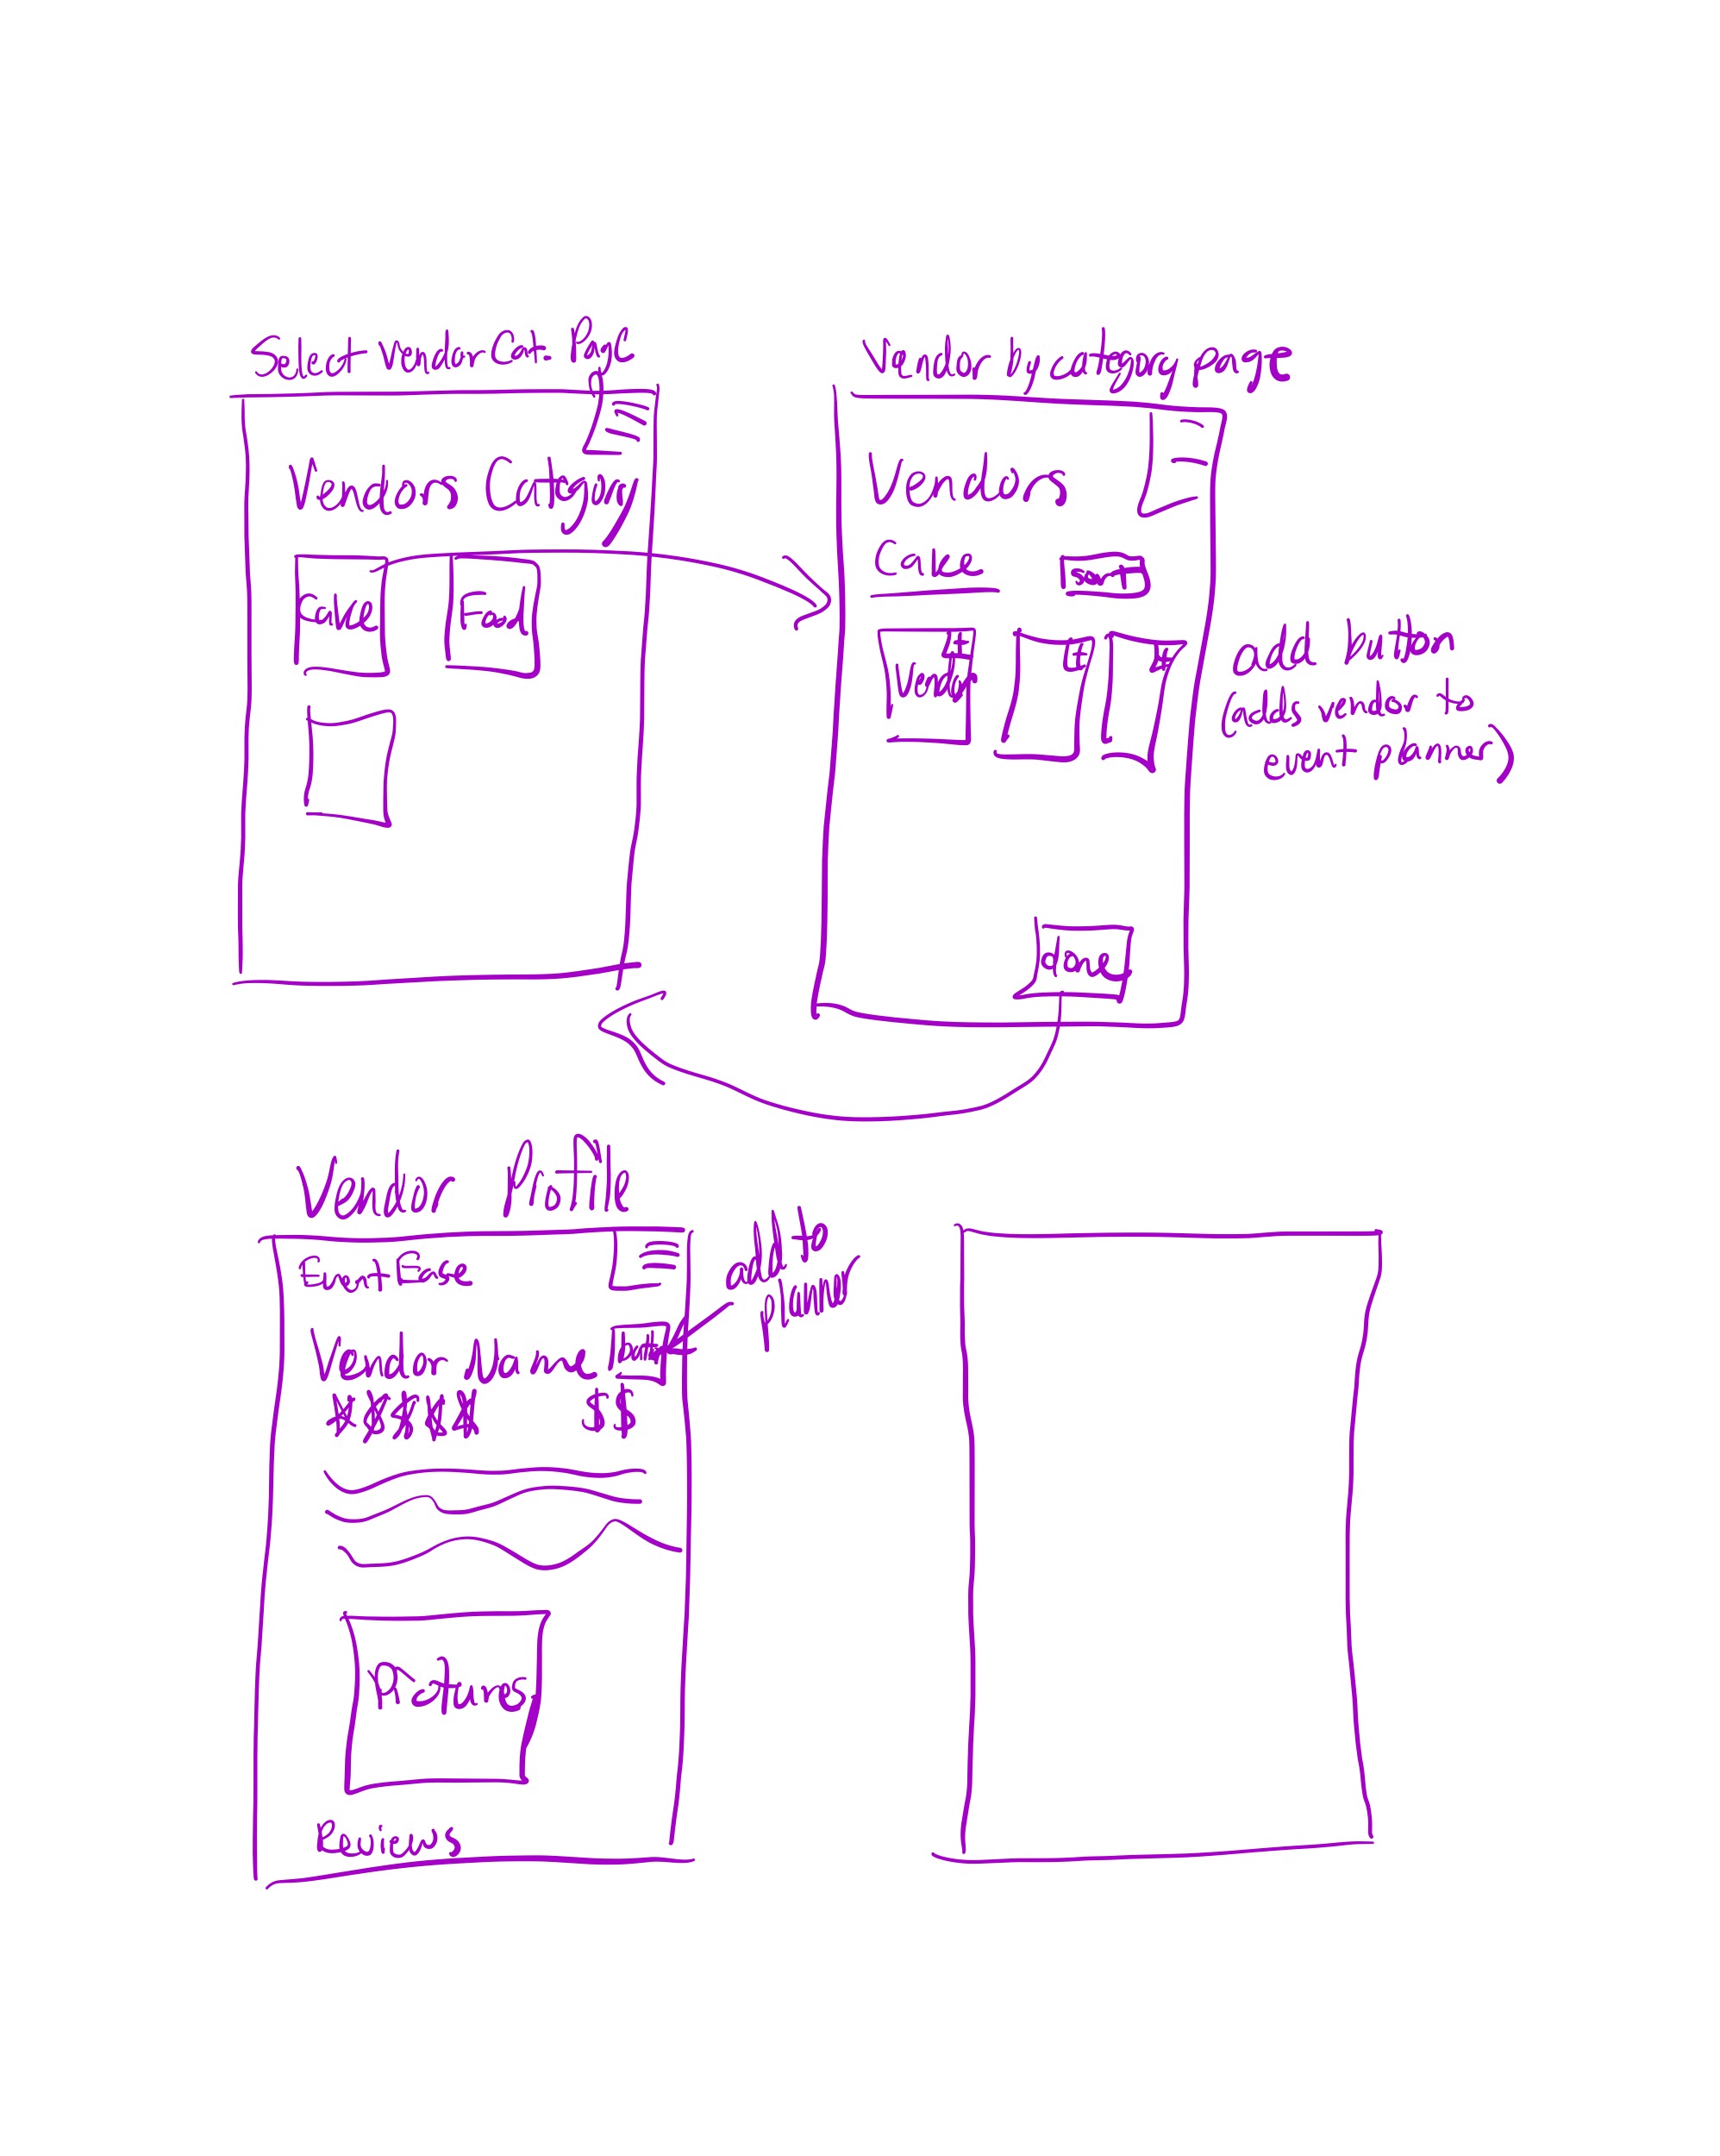 Select Vendor Cat. Page
Vendors Category
Cake
Food
Vendor by category page
Vendors
Cake
Sort
Vendor
+
+
+
add button
(adds vendor to
event planner)
done
Vendor Profile
Event Ease
Vendor Name
$$
Pictures
Reviews
add to
planner